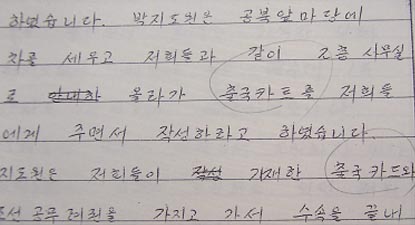 하였습니다. 박지도원은 공북앞마당에
차를 세우고 저희들과 같이 2층 사무실
로 안내하 올라가 출국카드를 저희들
에게 주면서 작성하라고 하였습니다.
지도원은 저희들이 작성 기재한 출국카드와
조선 공무려권을 가지고 가서 수속을 끝내